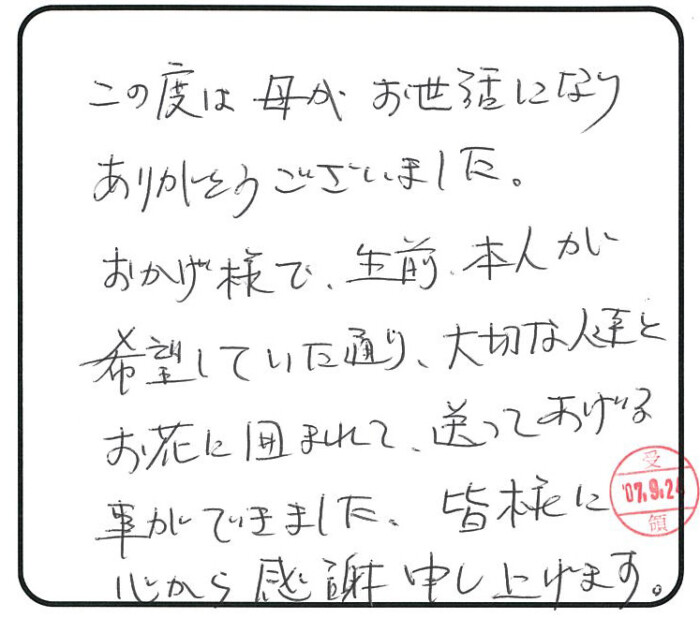 この度は母がお世話になり
ありがとうございました。
おかげ様で、生前、本人が
希望していた通り、大切な人達と
お花に囲まれて、送ってあげる
事ができました、皆様に
心から感謝申し上げます。
受
'07.9.24
領